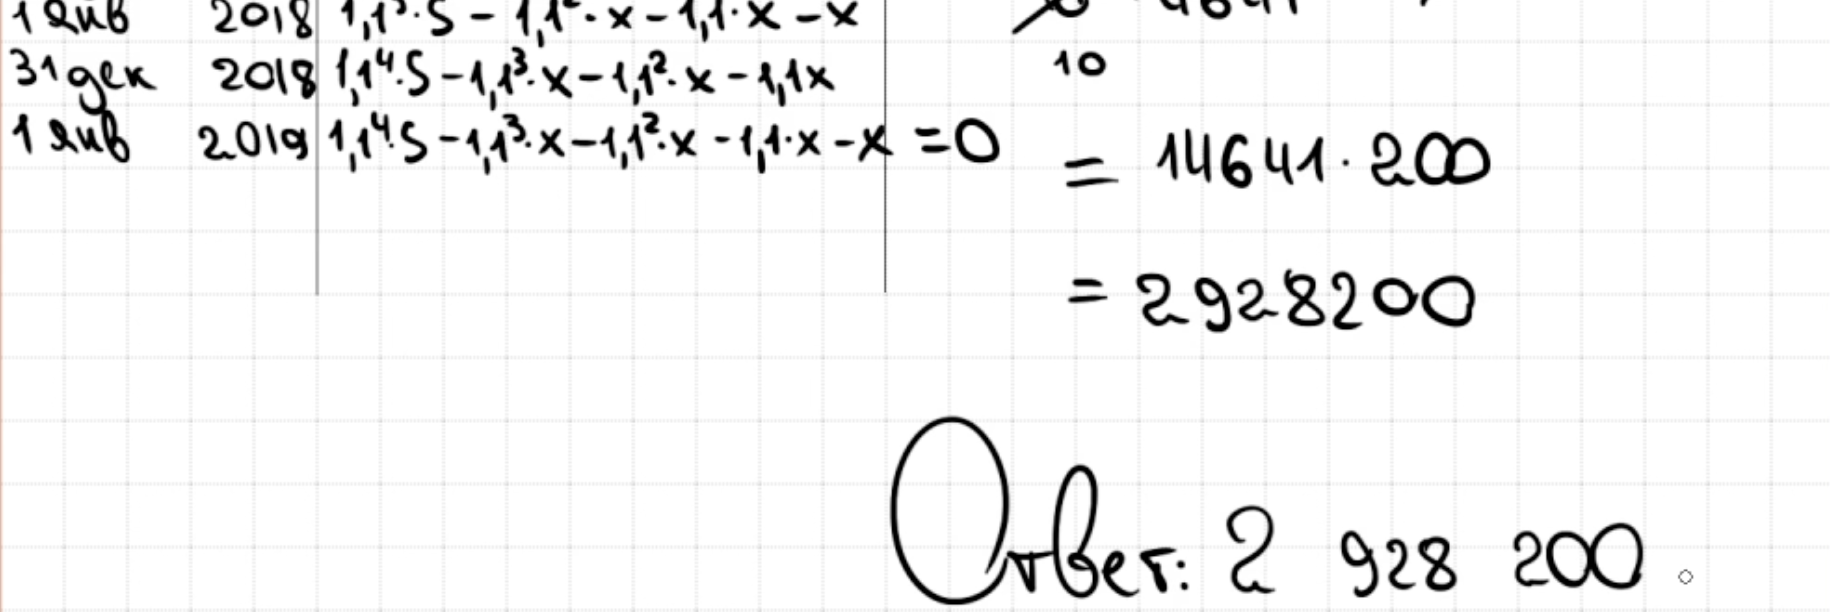 1 янв 2018 1,1³·S - 1,1²·x - 1,1·x - x
31 дек 2018 1,1⁴·S - 1,1³·x - 1,1²·x - 1,1x
1 янв 2019 1,1⁴·S - 1,1³·x - 1,1²·x - 1,1·x - x = 0
10
= 14641·200
= 2928200
Ответ: 2 928 200